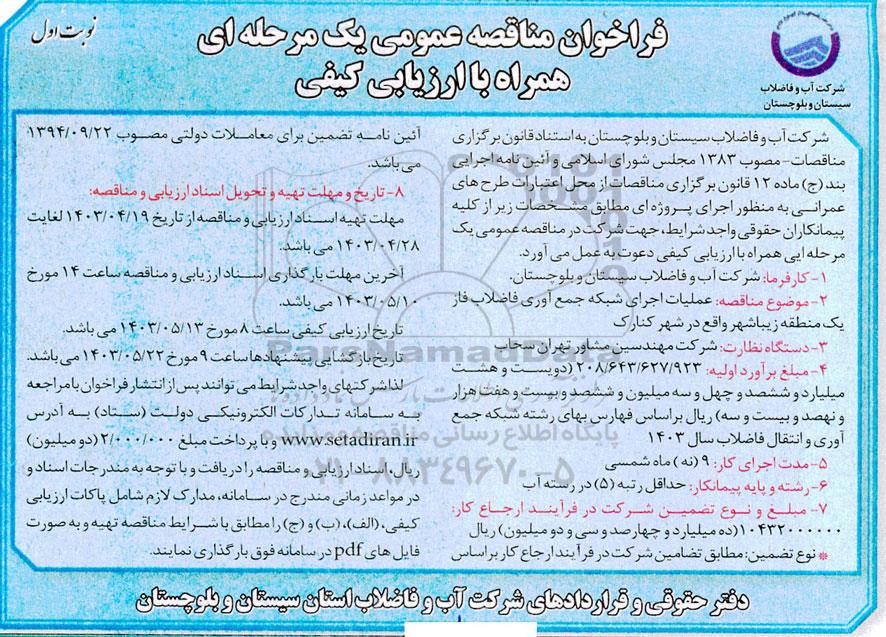 نوبت اول
فراخوان مناقصه عمومی یک مرحله ای
همراه با ارزیابی کیفی
شرکت آب و فاضلاب
سیستان و بلوچستان
شرکت آب و فاضلاب سیستان و بلوچستان به استناد قانون برگزاری
مناقصات - مصوب ۱۳۸۳ مجلس شورای اسلامی و آئین نامه اجرایی
بند (ج) ماده ۱۲ قانون برگزاری مناقصات از محل اعتبارات طرح های
عمرانی به منظور اجرای پروژه ای مطابق مشخصات زیر از کلیه
پیمانکاران حقوقی واجد شرایط، جهت شرکت در مناقصه عمومی یک
مرحله ایی همراه با ارزیابی کیفی دعوت به عمل می آورد.
۱- کارفرما: شرکت آب و فاضلاب سیستان و بلوچستان.
۲- موضوع مناقصه: عملیات اجرای شبکه جمع آوری فاضلاب فاز
یک منطقه زیباشهر واقع در شهر کنارک
۳- دستگاه نظارت: شرکت مهندسین مشاور تهران سحاب
۴- مبلغ برآورد اولیه: ۲۰۸/۶۴۳/۶۲۷/۹۲۳ (دویست و هشت
میلیارد و ششصد و چهل و سه میلیون و ششصد و بیست و هفت هزار
و نهصد و بیست و سه) ریال براساس فهارس بهای رشته شبکه جمع
آوری و انتقال فاضلاب سال ۱۴۰۳
۵- مدت اجرای کار: ۹ (نه) ماه شمسی
۶- رشته و پایه پیمانکار: حداقل رتبه (۵) در رشته آب
۷- مبلغ و نوع تضمین شرکت در فرآیند ارجاع کار:
۱۰۴۳۲۰۰۰۰۰۰ (ده میلیارد و چهارصد و سی و دو میلیون) ریال
* نوع تضمین: مطابق تضامین شرکت در فرآیند ارجاع کار براساس
آئین نامه تضمین برای معاملات دولتی مصوب ۱۳۹۴/۰۹/۲۲
می باشد.
۸- تاریخ و مهلت تهیه و تحویل اسناد ارزیابی و مناقصه:
مهلت تهیه اسناد ارزیابی و مناقصه از تاریخ ۱۴۰۳/۰۴/۱۹ لغایت
۱۴۰۳/۰۴/۲۸ می باشد.
آخرین مهلت بارگذاری اسناد ارزیابی و مناقصه ساعت ۱۴ مورخ
۱۴۰۳/۰۵/۱۰ می باشد.
تاریخ ارزیابی کیفی ساعت ۸ مورخ ۱۴۰۳/۰۵/۱۳ می باشد.
تاریخ بازگشایی پیشنهادها ساعت ۹ مورخ ۱۴۰۳/۰۵/۲۲ می باشد.
لذا شرکتهای واجد شرایط می توانند پس از انتشار فراخوان با مراجعه
به سامانه تدارکات الکترونیکی دولت (ستاد) به آدرس
www.setadiran.ir و با پرداخت مبلغ ۲/۰۰۰/۰۰۰ (دو میلیون)
ریال، اسناد ارزیابی و مناقصه را دریافت و با توجه به مندرجات اسناد و
در مواعد زمانی مندرج در سامانه، مدارک لازم شامل پاکات ارزیابی
کیفی، (الف)، (ب) و (ج) را مطابق با شرایط مناقصه تهیه و به صورت
فایل های pdf در سامانه فوق بارگذاری نمایند.
ParsNamadData
پایگاه اطلاع رسانی مناقصه و مزایده
۰۲۱-۸۸۳۴۹۶۷۰-۵
دفتر حقوقی و قراردادهای شرکت آب و فاضلاب استان سیستان و بلوچستان